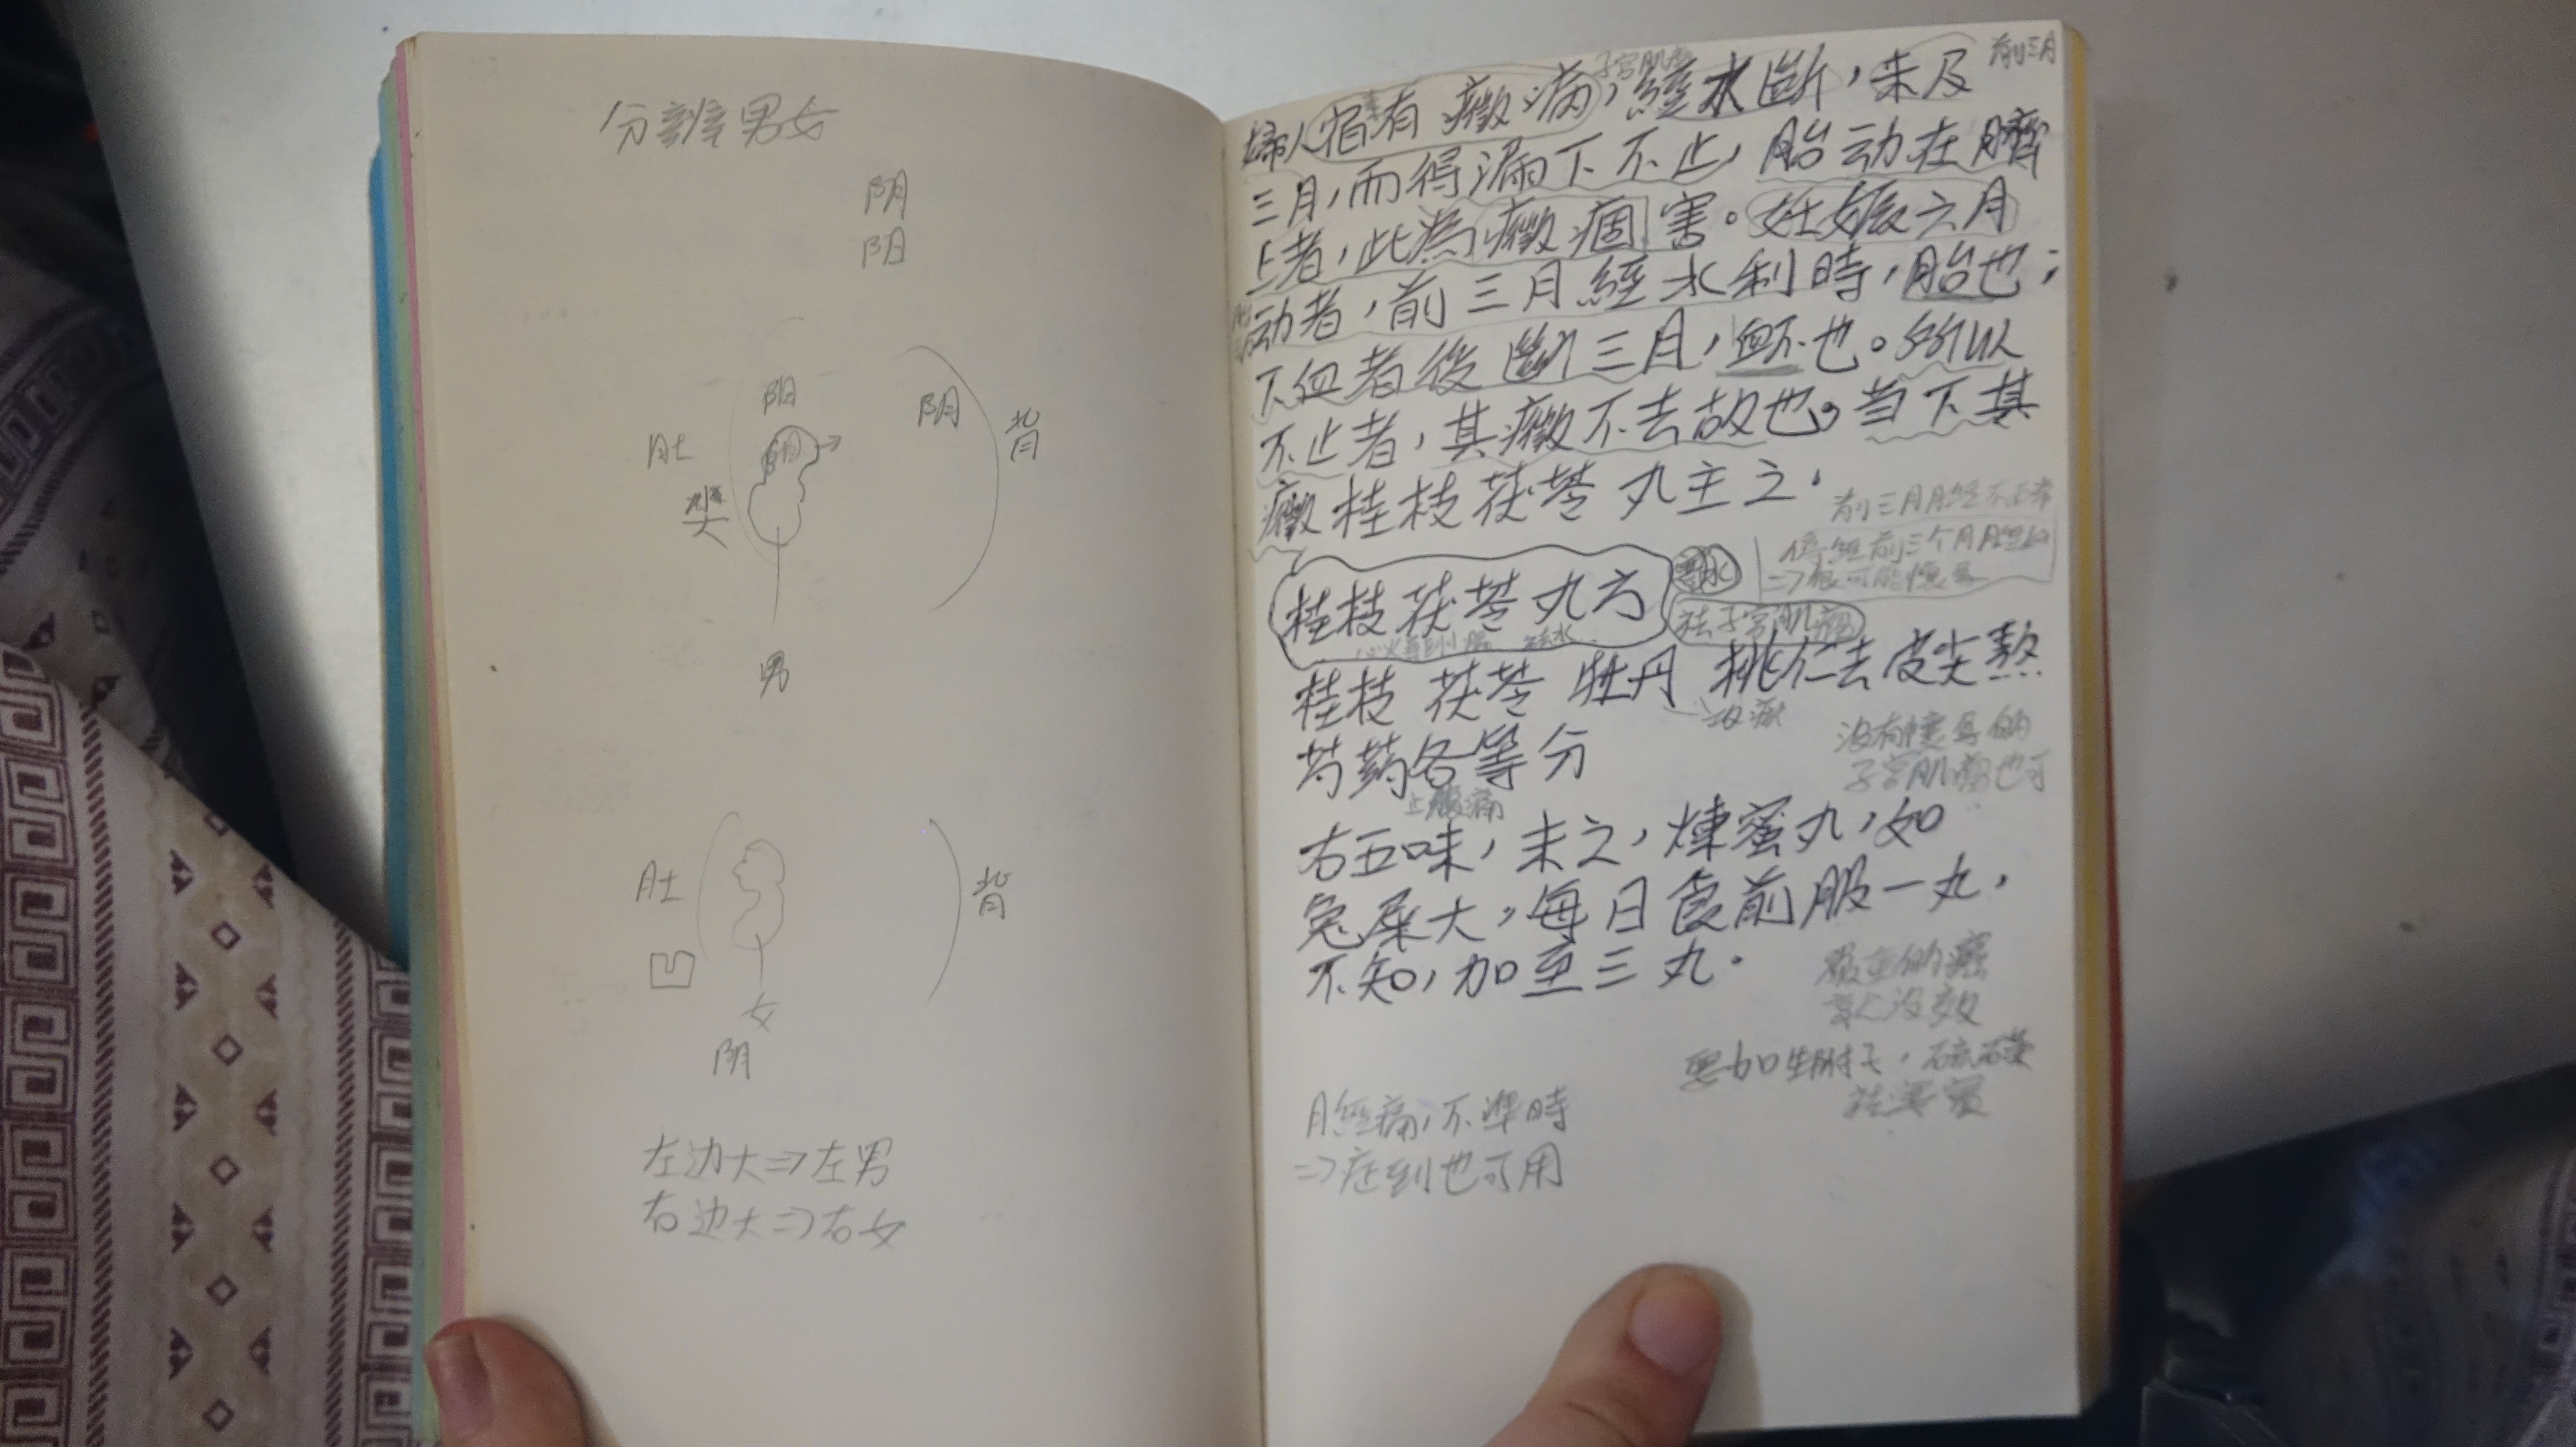 分辨男女
阴
阳
阳
阴
肚
背
阴
凸
男
肚
背
凹
女
阴
左边大⇒左男
右边大⇒右女
子宫肌瘤
前三月
婦人宿有癥病，經水斷，未及
三月，而得漏下不止，胎动在臍
上者，此為癥痼害。妊娠六月
动者，前三月經水利時，胎也；
下血者後斷三月，衃也。所以
不止者，其癥不去故也，当下其
癥桂枝茯苓丸主之，
前三月月經不正常
停經前三个月
⇒很可能懷孕
桂枝茯苓丸方
祛子宫肌瘤
桂枝 茯苓 牡丹 桃仁去皮尖熬
没有懷孕的
子宫肌瘤也可
芍藥各等分
止腹痛
右五味，末之，煉蜜丸，如
兔屎大，每日食前服一丸，
不知，加至三丸.
嚴重的癌
就没效
要加生附子，硫磺
月經痛，不準時
⇒症到也可用